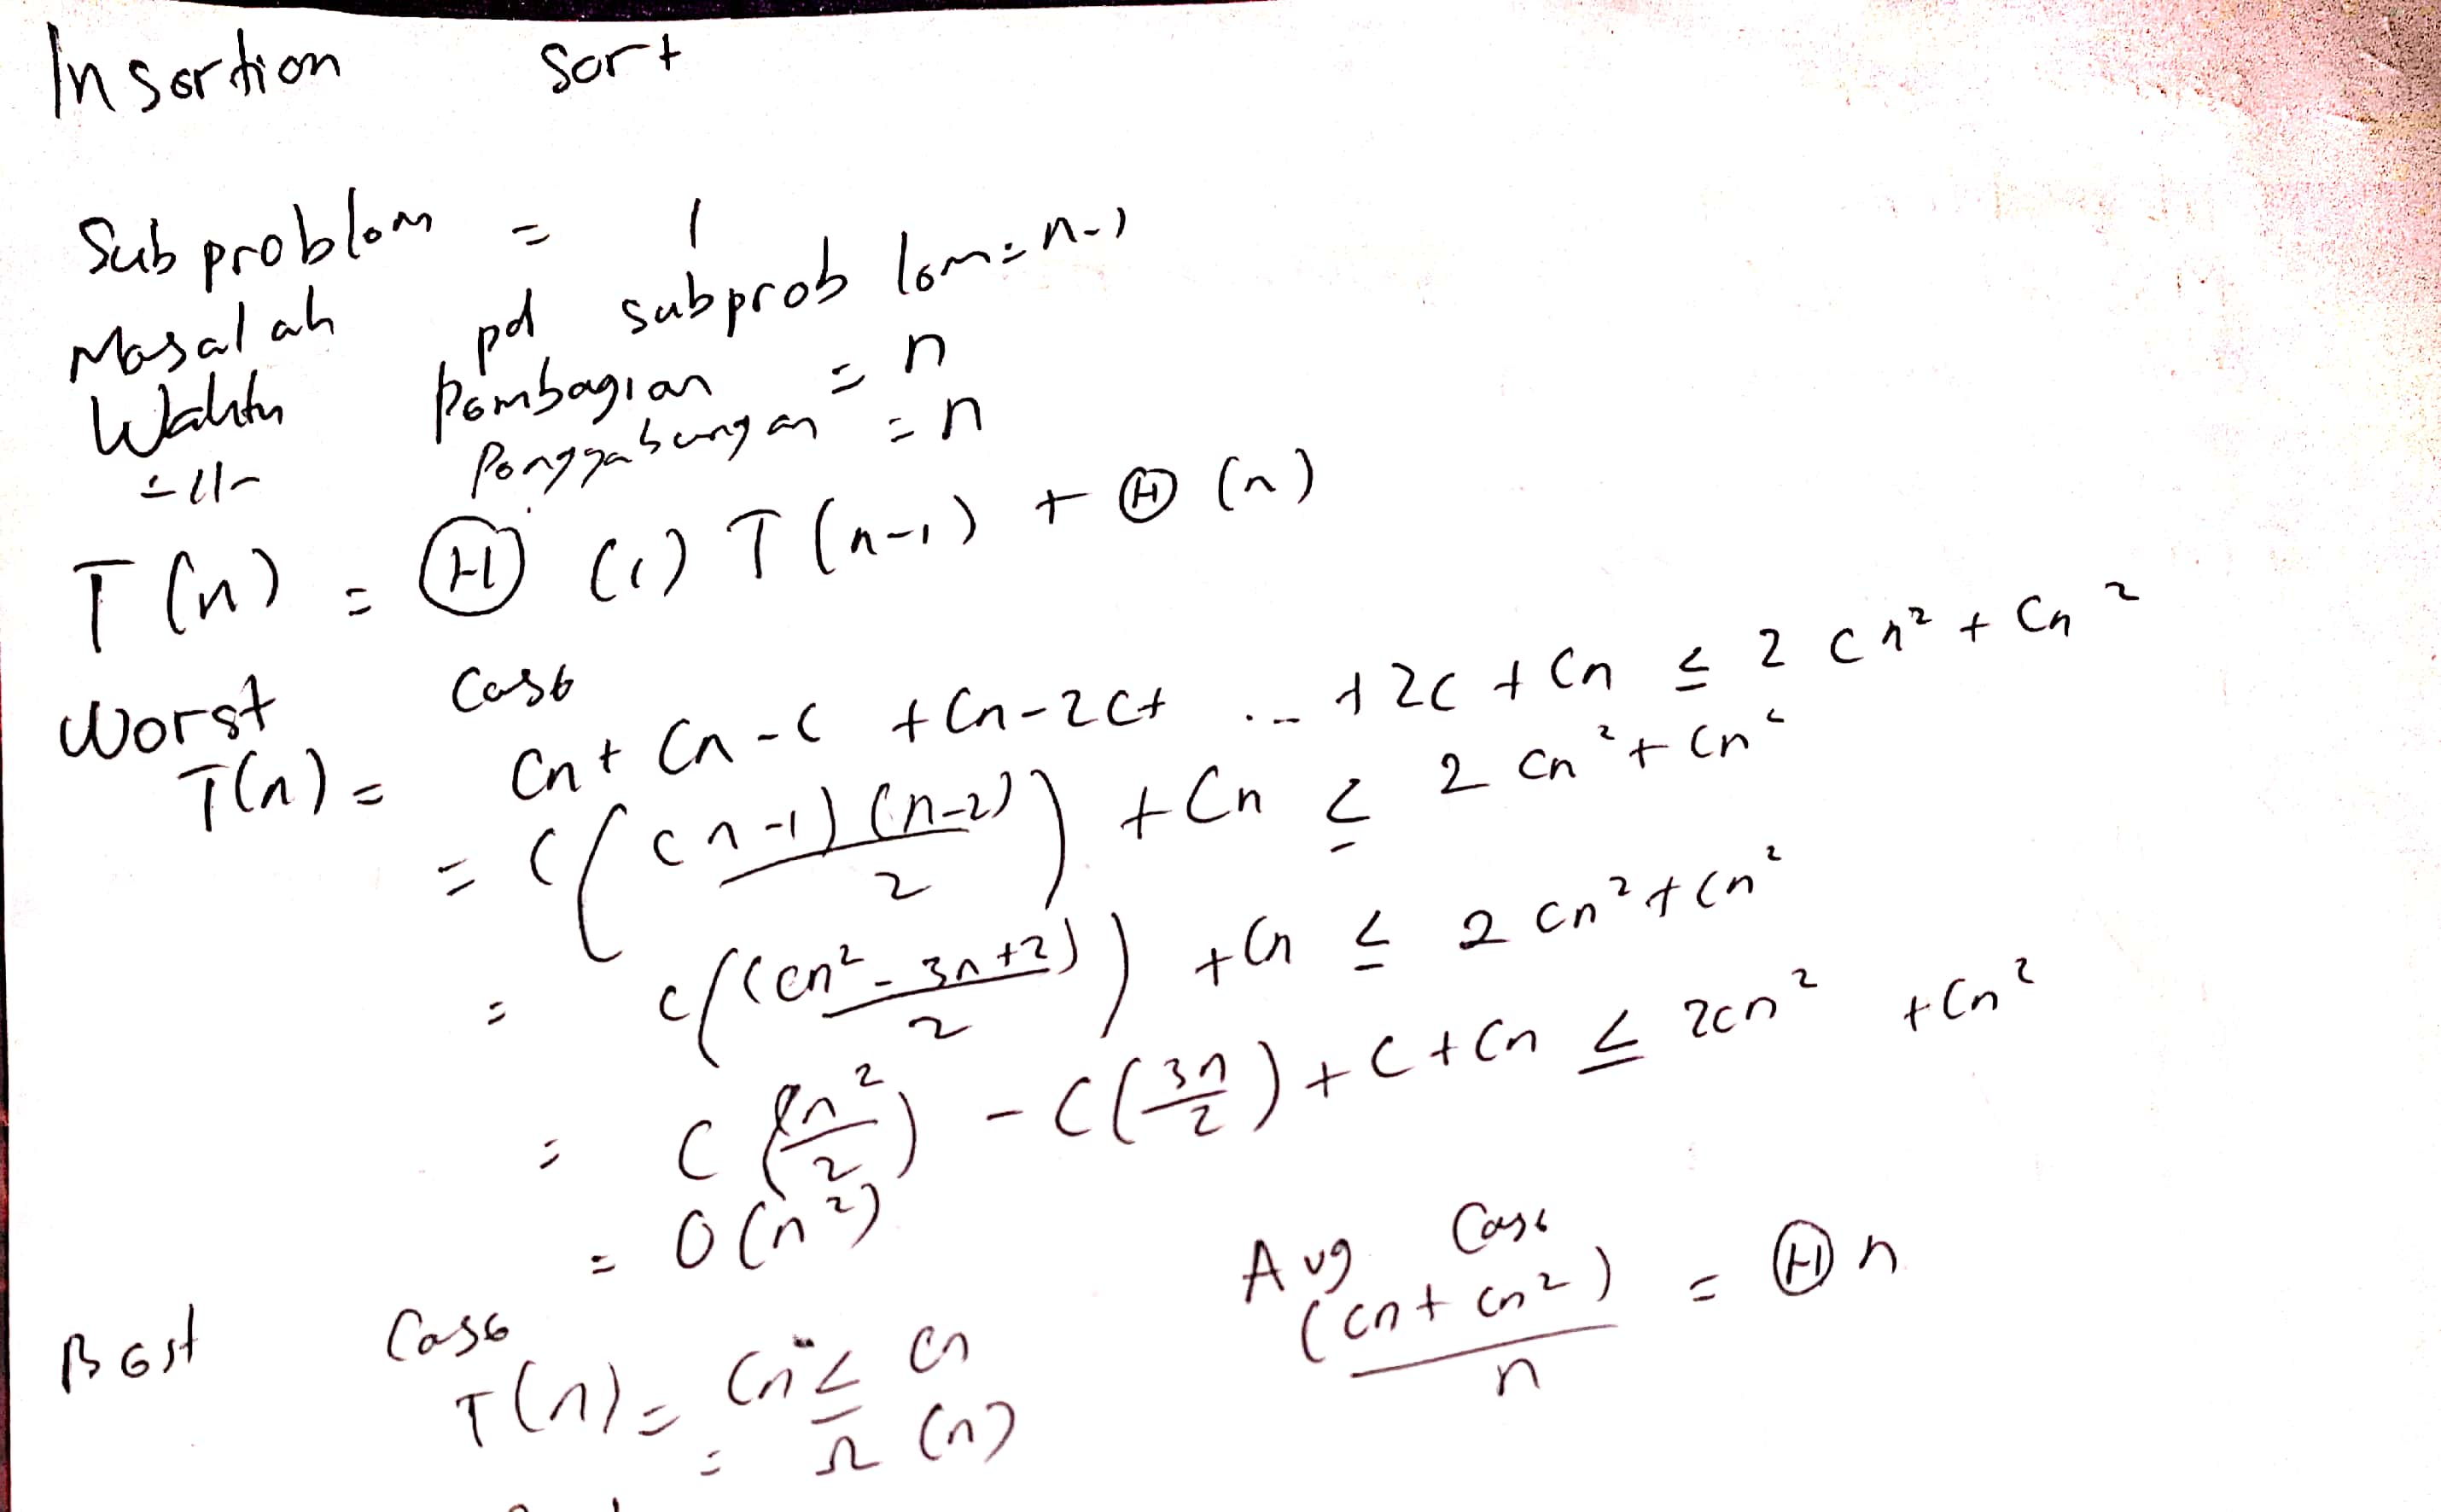 Insertion Sort
Subproblem = 1
Masalah pd subproblem = n-1
Waktu Pembagian = n
-11- Penggabungan = n
T(n) = Θ(1) T(n-1) + Θ(n)
Worst Case
T(n) = Cn + Cn - C + Cn - 2C + ... + 2C + Cn ≤ 2Cn² + Cn²
= C((n-1)(n-2)/2) + Cn ≤ 2Cn² + Cn²
= C((Cn² - 3n + 2)/2) + Cn ≤ 2Cn² + Cn²
= C(n²/2) - C(3n/2) + C + Cn ≤ 2Cn² + Cn²
= O(n²)
Best Case
T(n) = Cn ≤ Cn
= Ω(n)
Avg Case
(Cn + Cn²)/n = Θn